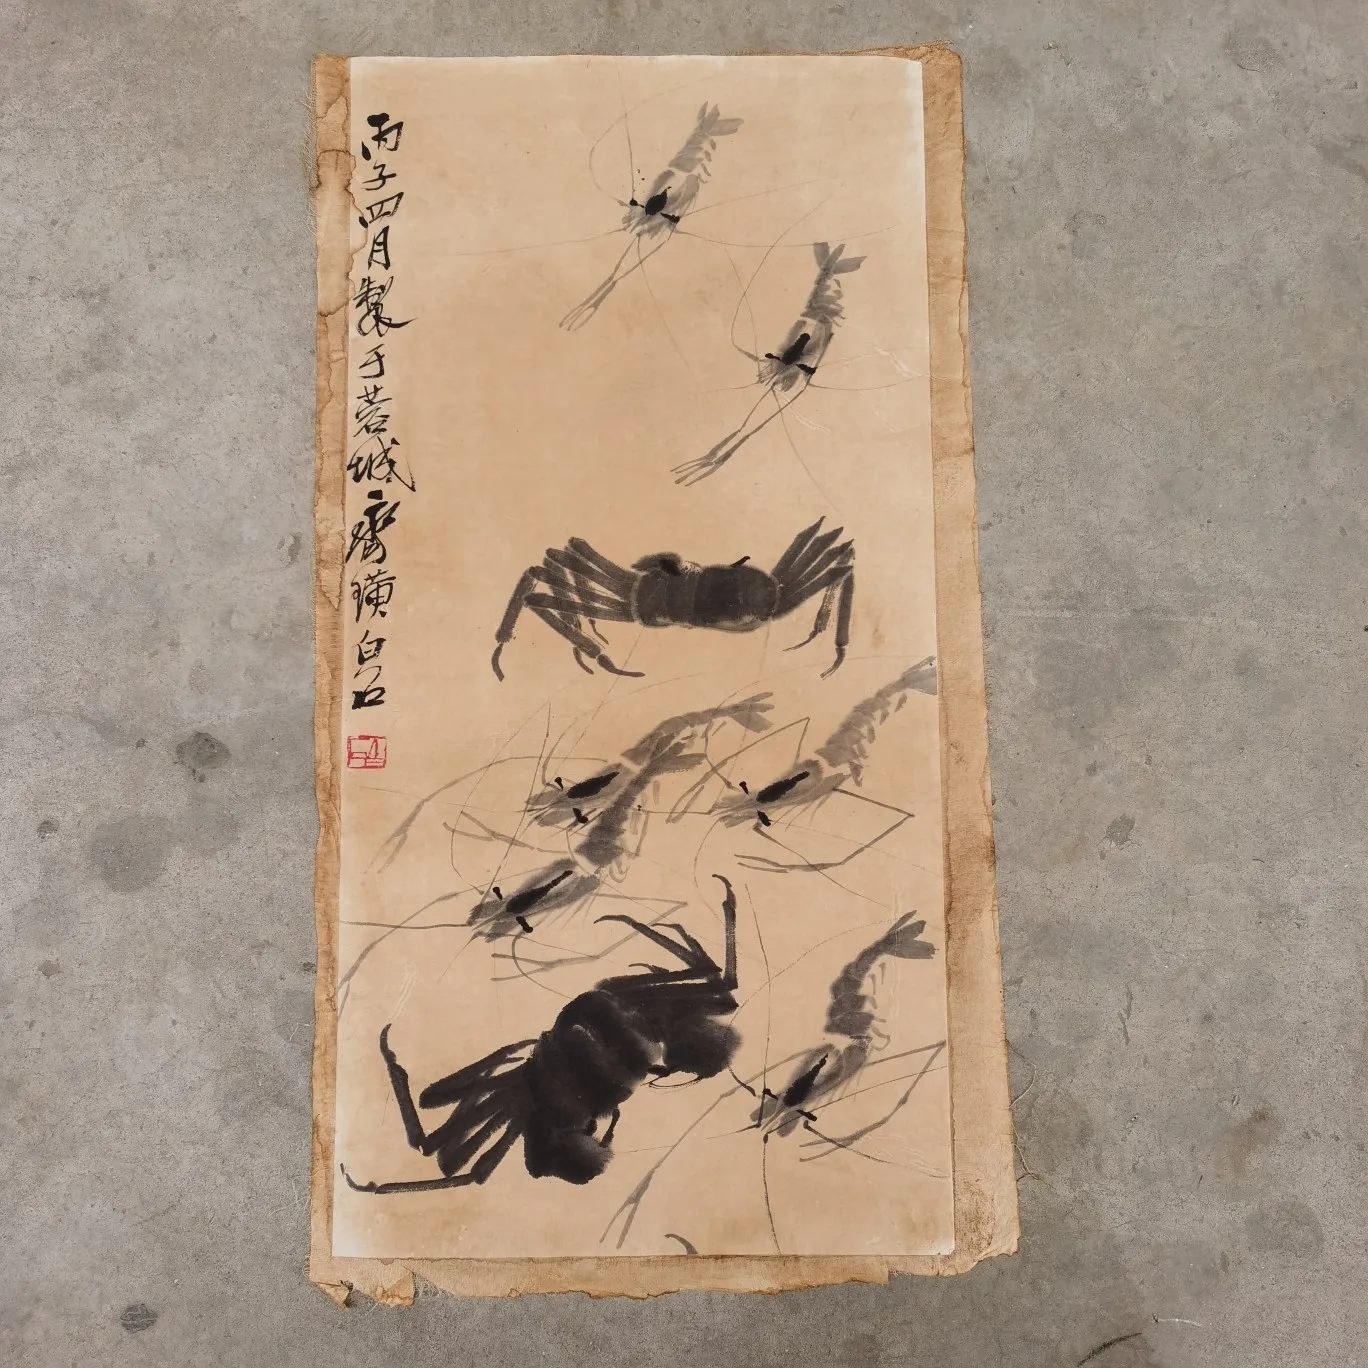 丙子四月製于蓉城齊璜白石